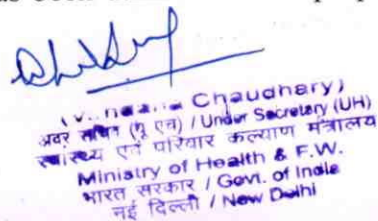 Chaudhary)
अवर सचिव (यू एच) / Under Secretary (UH)
स्वास्थ्य एवं परिवार कल्याण मंत्रालय
Ministry of Health & F.W.
भारत सरकार / Govt. of India
नई दिल्ली / New Delhi